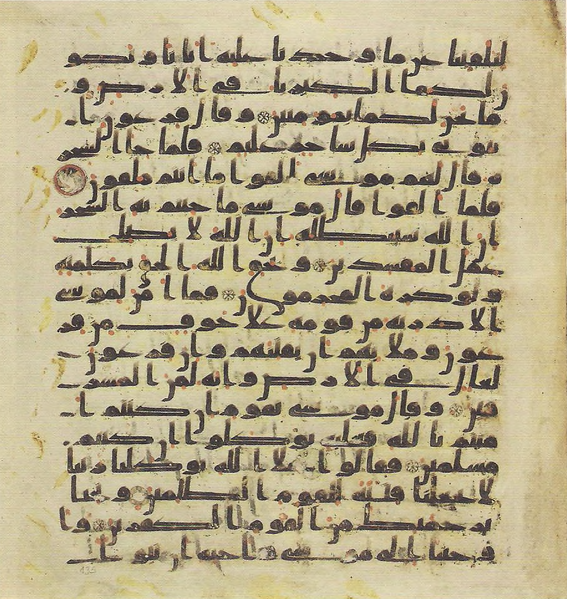 لتلفتنا عن ما وجدنا عليه ابانا وتكو
ن لكما الكبريا في الارض و
ما نحن لكما بمومنين وقال فرعون ا
يتوني بكل سحر عليم فلما جا السحر
ة قال لهم موسى القوا ما انتم ملقون
فلما القوا قال موسى ما جيتم به السحر
ان الله سيبطله ان الله لا يصلح
عمل المفسدين ويحق الله الحق بكلمته
ولو كره المجرمون فما امن لموسى
الا ذرية من قومه على خوف من فر
عون وملايهم ان يفتنهم وان فرعون
لعال في الارض وانه لمن المسر
فين وقال موسى يقوم ان كنتم ا
منتم بالله فعليه توكلوا ان كنتم
مسلمين فقالوا على الله توكلنا ربنا
لا تجعلنا فتنة للقوم الظلمين ونجنا
برحمتك من القوم الكفرين وا
وحينا الى موسى واخيه ان تبوا